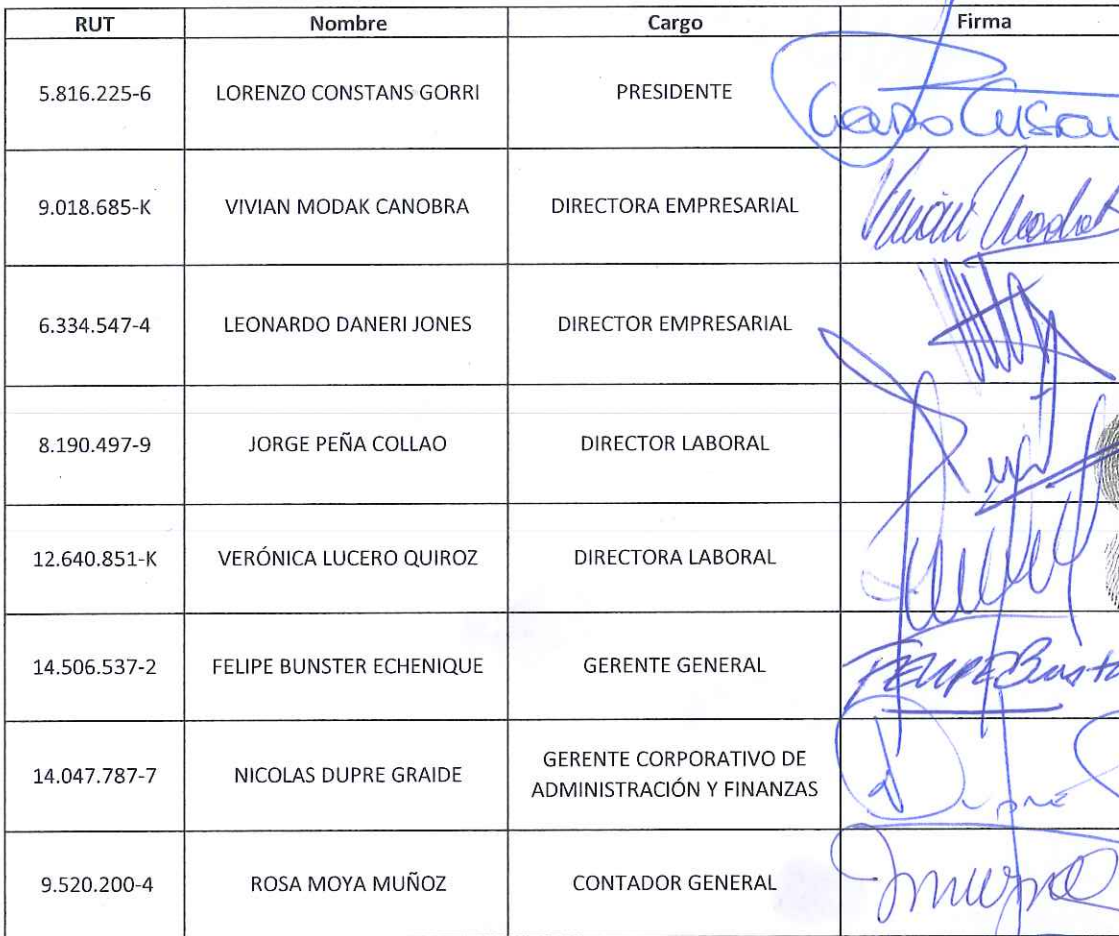 RUT Nombre Cargo Firma
5.816.225-6 LORENZO CONSTANS GORRI PRESIDENTE
9.018.685-K VIVIAN MODAK CANOBRA DIRECTORA EMPRESARIAL
6.334.547-4 LEONARDO DANERI JONES DIRECTOR EMPRESARIAL
8.190.497-9 JORGE PEÑA COLLAO DIRECTOR LABORAL
12.640.851-K VERÓNICA LUCERO QUIROZ DIRECTORA LABORAL
14.506.537-2 FELIPE BUNSTER ECHENIQUE GERENTE GENERAL
14.047.787-7 NICOLAS DUPRE GRAIDE GERENTE CORPORATIVO DE
ADMINISTRACIÓN Y FINANZAS
9.520.200-4 ROSA MOYA MUÑOZ CONTADOR GENERAL